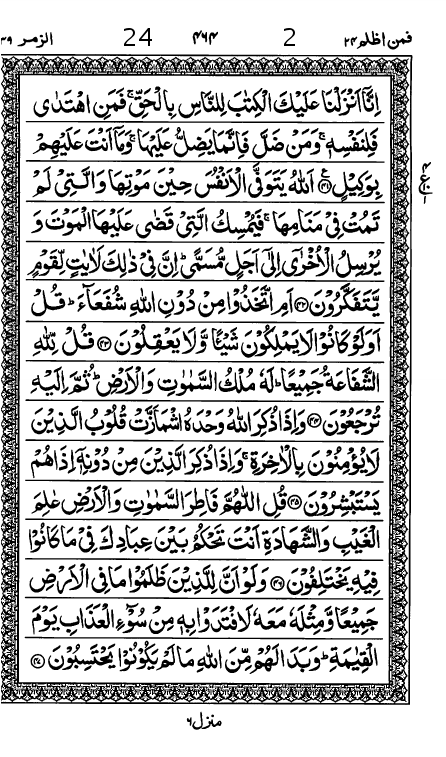 فمن اظلم ۲۴ 2 ۴۶۴ 24 الزمر ۳۹
اِنَّاۤ اَنْزَلْنَا عَلَيْكَ الْكِتٰبَ لِلنَّاسِ بِالْحَقِّ ۚ فَمَنِ اهْتَدٰى
فَلِنَفْسِهٖ ۚ وَمَنْ ضَلَّ فَاِنَّمَا يَضِلُّ عَلَيْهَا ۚ وَمَاۤ اَنْتَ عَلَيْهِمْ
بِوَكِيْلٍ ﴿۴۱﴾ اَللّٰهُ يَتَوَفَّى الْاَنْفُسَ حِيْنَ مَوْتِهَا وَالَّتِيْ لَمْ
تَمُتْ فِيْ مَنَامِهَا ۚ فَيُمْسِكُ الَّتِيْ قَضٰى عَلَيْهَا الْمَوْتَ وَ
يُرْسِلُ الْاُخْرٰۤى اِلٰۤى اَجَلٍ مُّسَمًّى ؕ اِنَّ فِيْ ذٰلِكَ لَاٰيٰتٍ لِّقَوْمٍ
يَّتَفَكَّرُوْنَ ﴿۴۲﴾ اَمِ اتَّخَذُوْا مِنْ دُوْنِ اللّٰهِ شُفَعَآءَ ؕ قُلْ
اَوَلَوْ كَانُوْا لَا يَمْلِكُوْنَ شَيْـًٔا وَّلَا يَعْقِلُوْنَ ﴿۴۳﴾ قُلْ لِّلّٰهِ
الشَّفَاعَةُ جَمِيْعًا ؕ لَهٗ مُلْكُ السَّمٰوٰتِ وَالْاَرْضِ ؕ ثُمَّ اِلَيْهِ
تُرْجَعُوْنَ ﴿۴۴﴾ وَاِذَا ذُكِرَ اللّٰهُ وَحْدَهُ اشْمَاَزَّتْ قُلُوْبُ الَّذِيْنَ
لَا يُؤْمِنُوْنَ بِالْاٰخِرَةِ ۚ وَاِذَا ذُكِرَ الَّذِيْنَ مِنْ دُوْنِهٖۤ اِذَا هُمْ
يَسْتَبْشِرُوْنَ ﴿۴۵﴾ قُلِ اللّٰهُمَّ فَاطِرَ السَّمٰوٰتِ وَالْاَرْضِ عٰلِمَ
الْغَيْبِ وَالشَّهَادَةِ اَنْتَ تَحْكُمُ بَيْنَ عِبَادِكَ فِيْ مَا كَانُوْا
فِيْهِ يَخْتَلِفُوْنَ ﴿۴۶﴾ وَلَوْ اَنَّ لِلَّذِيْنَ ظَلَمُوْا مَا فِي الْاَرْضِ
جَمِيْعًا وَّمِثْلَهٗ مَعَهٗ لَافْتَدَوْا بِهٖ مِنْ سُوْٓءِ الْعَذَابِ يَوْمَ
الْقِيٰمَةِ ؕ وَبَدَا لَهُمْ مِّنَ اللّٰهِ مَا لَمْ يَكُوْنُوْا يَحْتَسِبُوْنَ ﴿۴۷﴾
منزل ۶